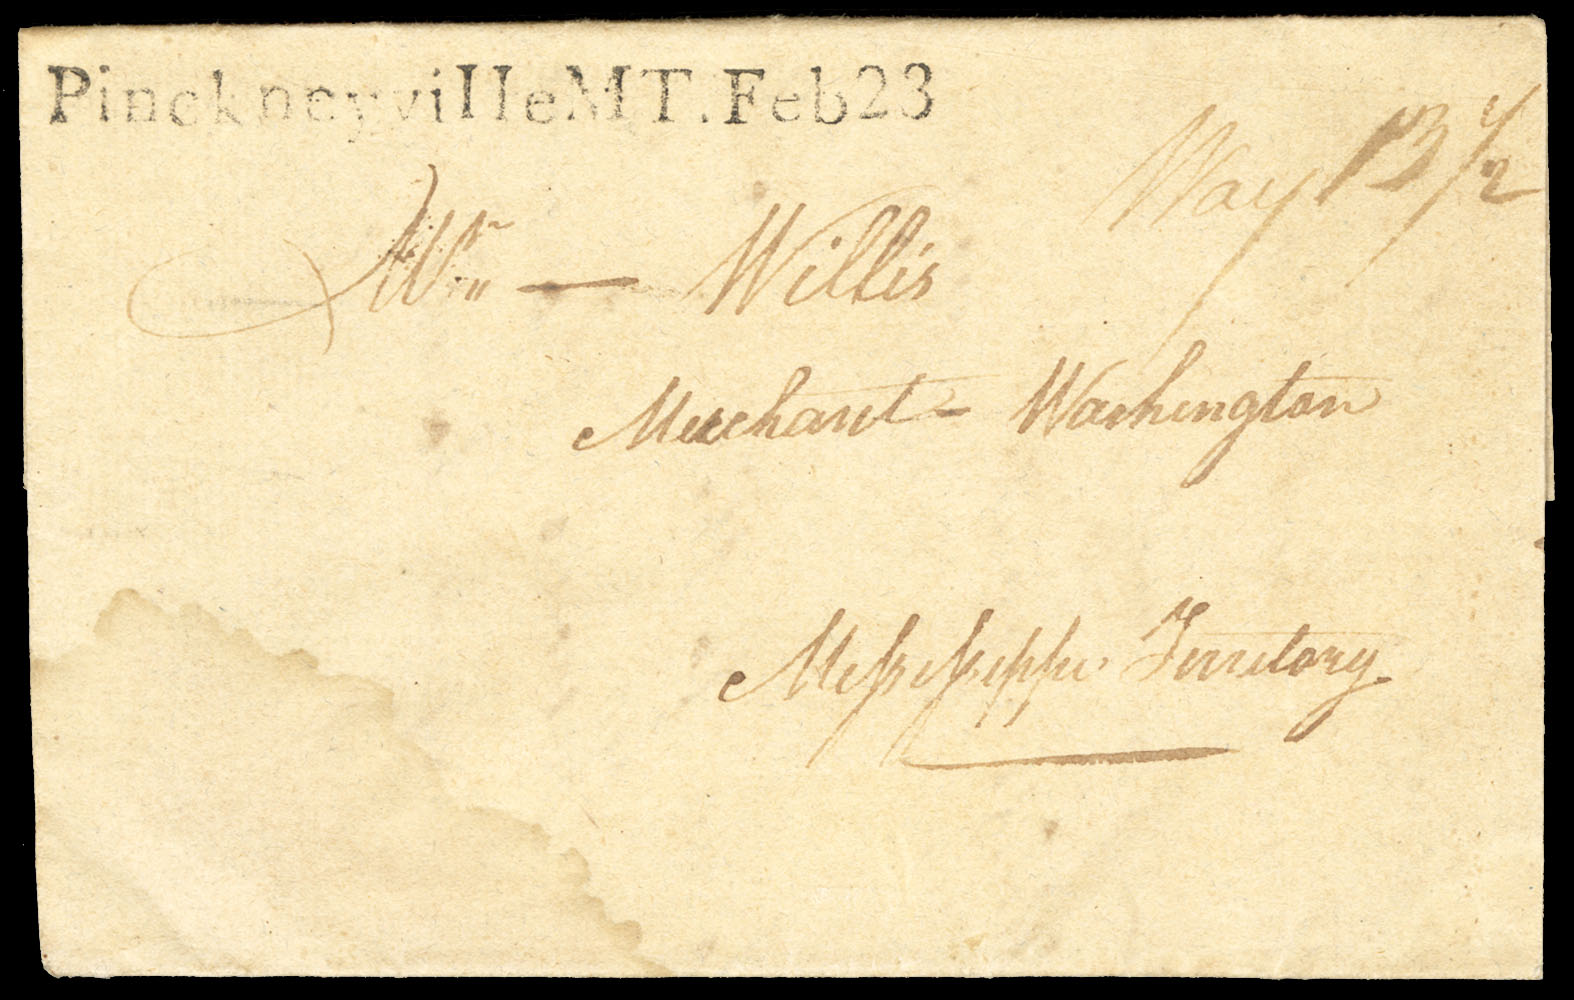 PinckneyvilleMT.Feb23
Way 13 1/2
Mr — Willis
Merchant - Washington
Missisippi Territory